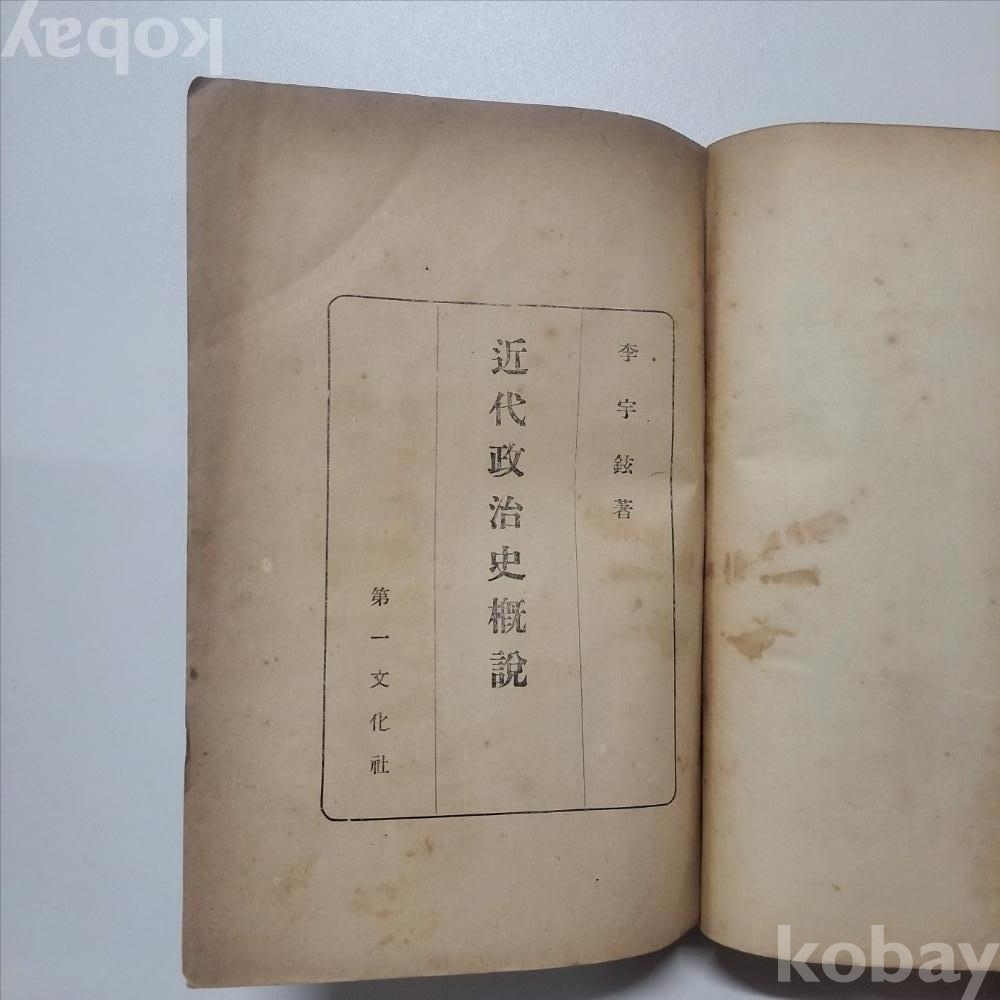 李宇鉉著
近代政治史概說
第一文化社
kobay
kobay